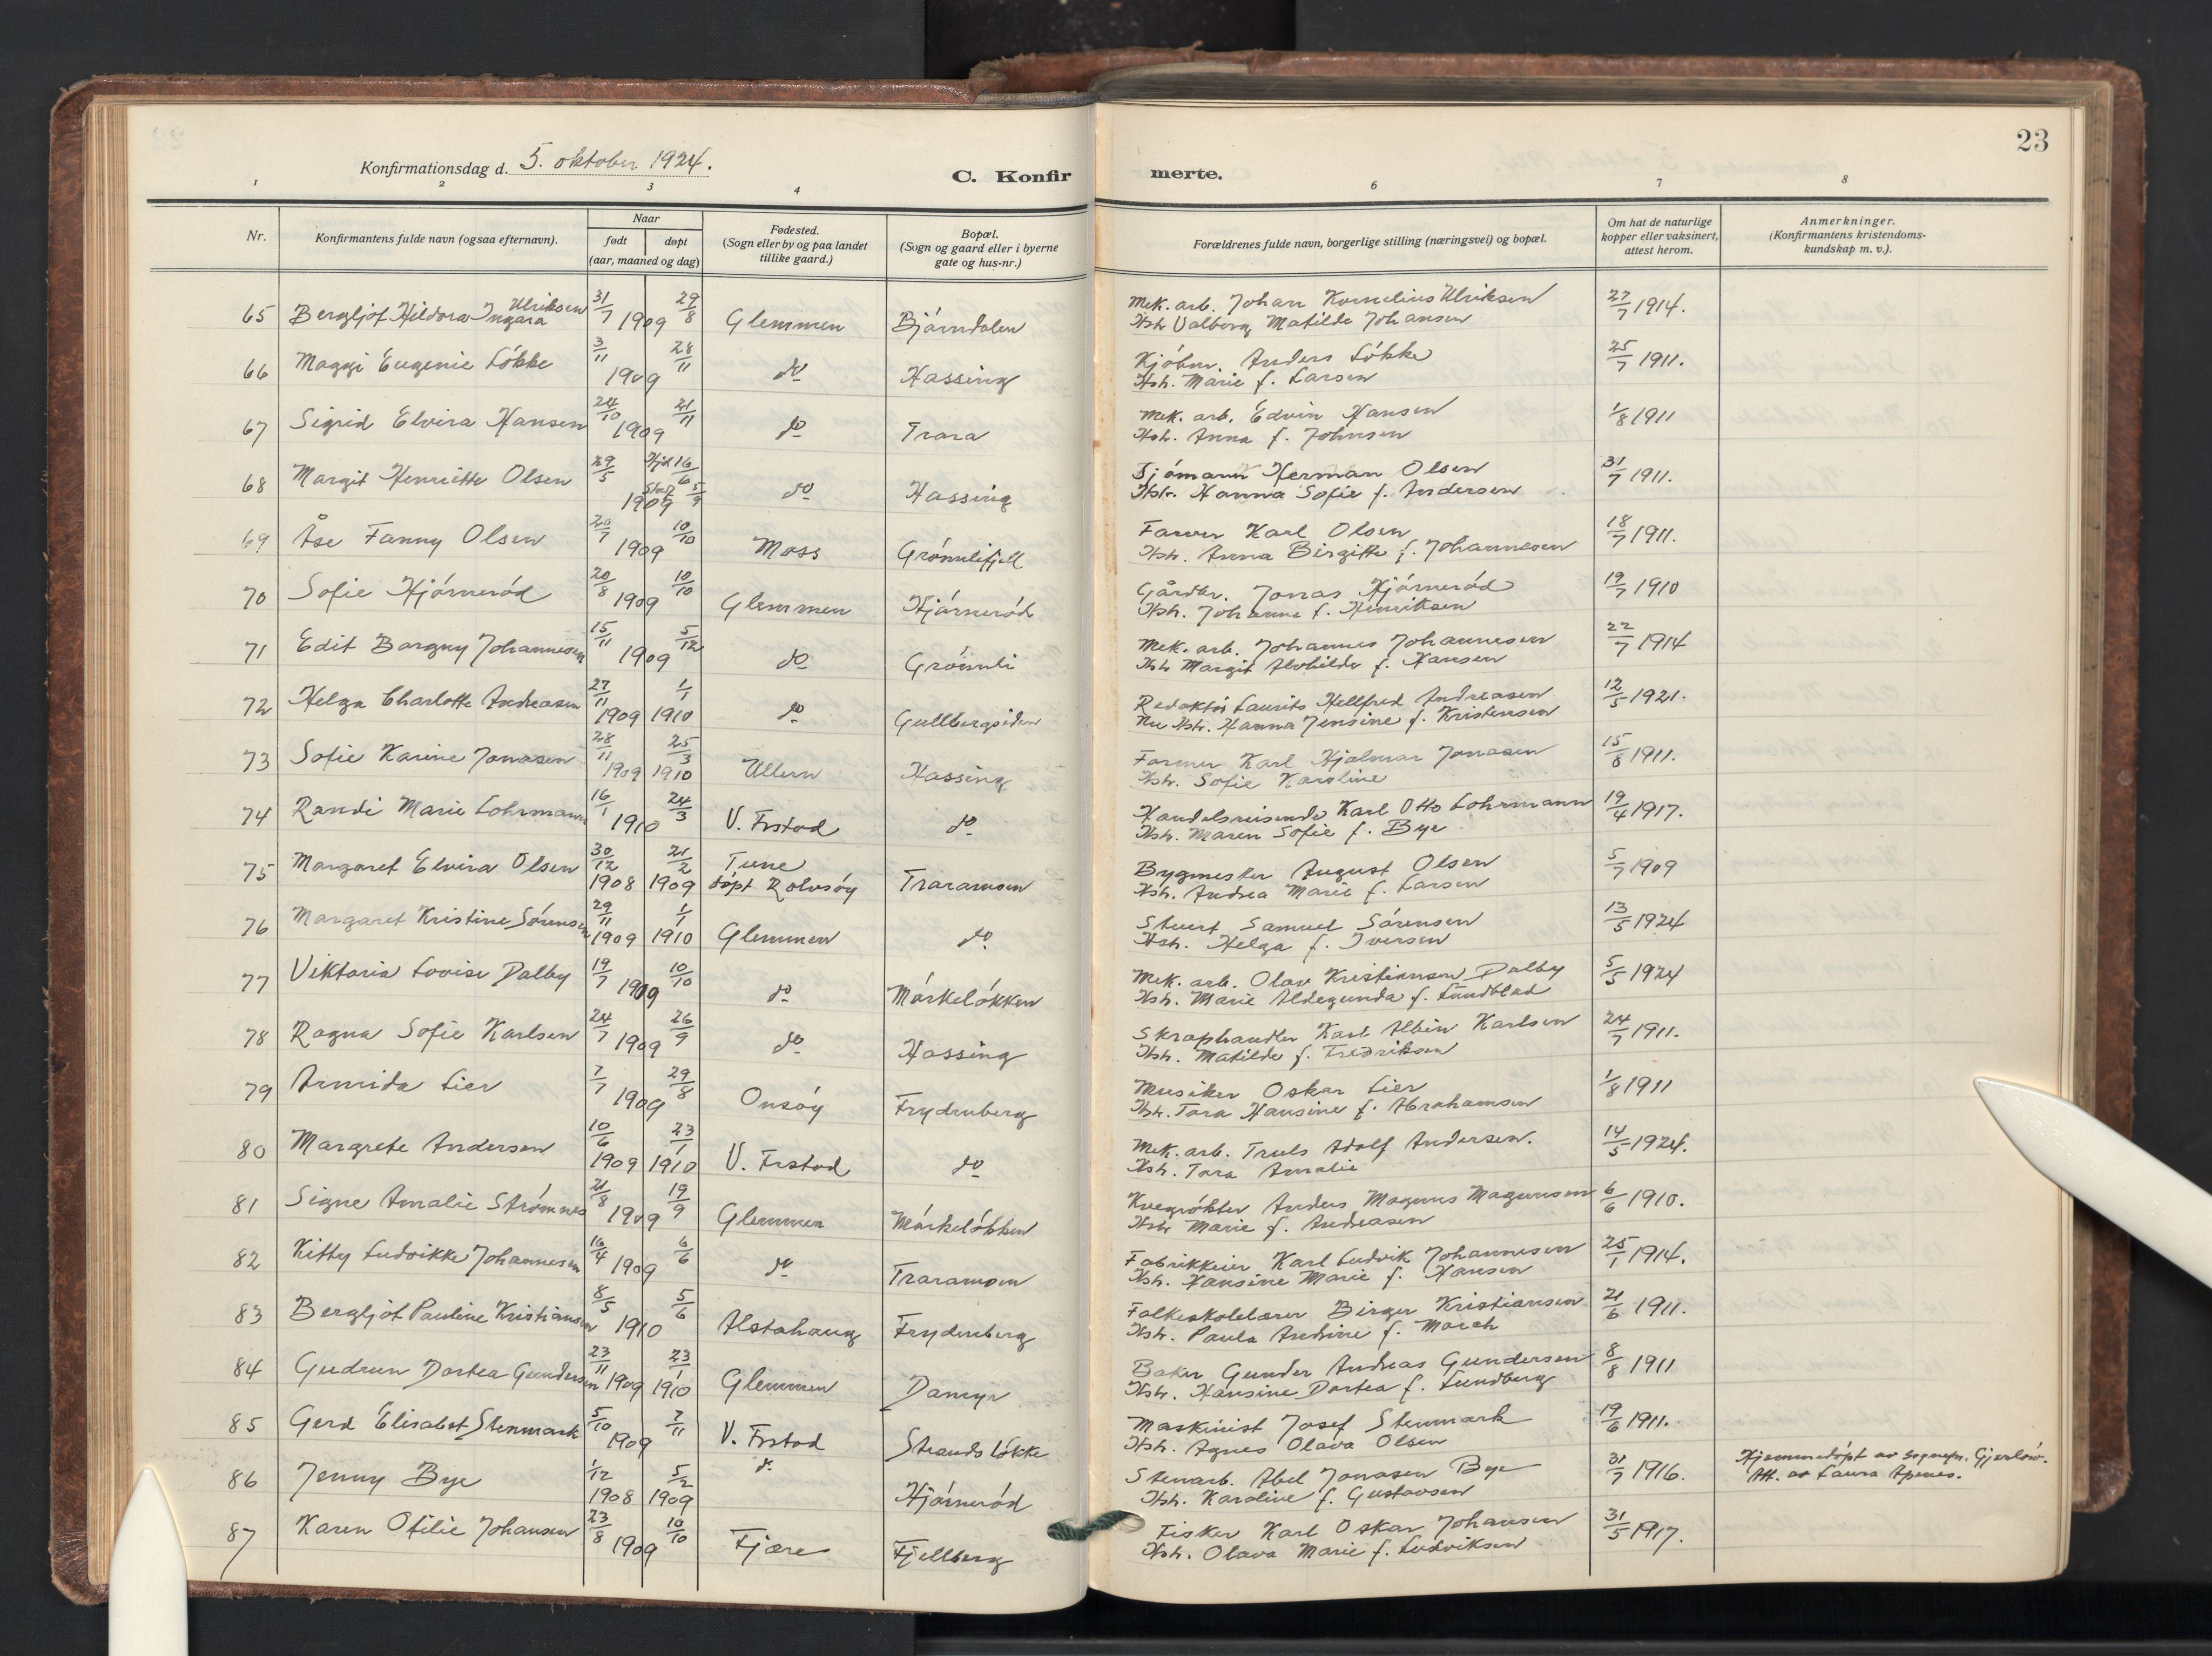 23
Konfirmationsdag d. 5. oktober 1924.
C. Konfirmerte.
1 2 3 4 6 7 8
Nr. Konfirmantens fulde navn (ogsaa efternavn). Naar født døpt (aar, maaned og dag) Fødested. (Sogn eller by og paa landet tillike gaard.) Bopæl. (Sogn og gaard eller i byerne gate og hus-nr.) Forældrenes fulde navn, borgerlige stilling (næringsvei) og bopæl. Om hat de naturlige kopper eller vaksinert, attest herom. Anmerkninger. (Konfirmantens kristendomskundskap m. v.).
65 Bergljot Hildora Ingara Ulriksen 31/7 1909 29/8 Glemmen Bjørndalen Mek. arb. Johan Kornelius Ulriksen 27/7 1914.
Hstr Valborg Matilde Johansen
66 Maggi Eugenie Løkke 3/11 1909 28/11 do Hassing Kjøbm. Anders Løkke 25/7 1911.
Hstr. Marie f. Larsen
67 Sigrid Elvira Hansen 24/10 1909 21/11 do Trara Mek. arb. Edvin Hansen 1/8 1911
Hstr. Anna f. Johnsen
68 Margit Henriette Olsen 29/5 1909 Hjd 16/6 5/9 do Hassing Sjømann Herman Olsen 31/7 1911.
Hstr. Hanna Sofie f. Andersen
69 Åse Fanny Olsen 20/7 1909 10/10 Moss Grønlifjell Farver Karl Olsen 18/7 1911.
Hstr. Anna Birgitte f. Johannesen
70 Sofie Hjørnerød 20/8 1909 10/10 Glemmen Hjørnerød Gårdbr. Jonas Hjørnerød 19/7 1910
Hstr. Johanne f. Henriksen
71 Edit Borgny Johannesen 15/11 1909 5/12 do Grønli Mek. arb. Johannes Johannesen 22/7 1914
Hstr Margit Alvhilde f. Hansen
72 Helga Charlotte Andreasen 27/11 1909 1/1 1910 do Gullbergsiden Redaktør Laurits Hellfred Andreasen 12/5 1921.
Nu Hstr. Hanna Jensine f. Kristensen
73 Sofie Karine Jonasen 28/11 1909 25/3 1910 Ullern Hassing Former Karl Hjalmar Jonasen 15/8 1911.
Hstr. Sofie Karoline
74 Randi Marie Lohrmann 16/1 1910 24/3 V. Frstad do Handelsreisende Karl Otto Lohrmann 19/4 1917.
Hstr. Maren Sofie f. Bye
75 Margaret Elvira Olsen 30/12 1908 21/2 1909 Tune døpt Rolvsøy Traramoen Bygmester August Olsen 5/7 1909
Hstr. Andrea Marie f. Larsen
76 Margaret Kristine Sørensen 29/11 1909 1/1 1910 Glemmen do Stuert Samuel Sørensen 13/5 1924
Hstr. Helga f. Iversen
77 Viktoria Lovise Dalby 19/7 1909 10/10 do Mørkeløkken Mek. arb. Olav Kristiansen Dalby 5/5 1924
Hstr. Marie Aldegunda f. Lundblad
78 Ragna Sofie Karlsen 24/7 1909 26/9 do Hassing Skraphandler Karl Albin Karlsen 24/7 1911.
Hstr. Matilde f. Fredriksen
79 Armida Lier 7/7 1909 29/8 Onsøy Frydenberg Musiker Oskar Lier 1/8 1911
Hstr. Tora Hansine f. Abrahamsen
80 Margrete Andersen 10/6 1909 23/1 1910 V. Frstad do Mek. arb. Truls Adolf Andersen. 14/5 1924.
Hstr. Tora Amalie
81 Signe Amalie Strømnes 21/8 1909 19/9 Glemmen Mørkeløkken Kvegrøkter Anders Magnus Magnusen 6/6 1910.
Hstr Marie f. Andreasen
82 Kitty Ludvikke Johannesen 16/4 1909 6/6 do Traramoen Fabrikkeier Karl Ludvik Johannesen 25/1 1914.
Hstr. Hansine Marie f. Hansen
83 Bergljot Pauline Kristiansen 8/5 1910 5/6 Alstahaug Frydenberg Folkeskolelærer Birger Kristiansen 21/6 1911.
Hstr. Paula Andrine f. Marah
84 Gudrun Dortea Gundersen 23/11 1909 23/1 1910 Glemmen Damyr Baker Gunder Andreas Gundersen 8/8 1911
Hstr. Hansine Dortea f. Lundberg
85 Gerd Elisabet Stenmark 5/10 1909 7/11 V. Frstad Strands Løkke Maskinist Josef Stenmark 19/6 1911.
Hstr. Agnes Olava Olsen
86 Jenny Bye 1/12 1908 5/2 1909 do Hjørnerød Stenarb. Abel Jonasen Bye 31/7 1916. Hjemmedøpt av sognepr. Gjerløw.
Hstr. Karoline f. Gustavsen Att. av Laura Apenes.
87 Karen Ofilie Johansen 23/8 1909 10/10 Fjære Fjellberg Fisker Karl Oskar Johansen 31/5 1917.
Hstr. Olava Marie f. Ludviksen